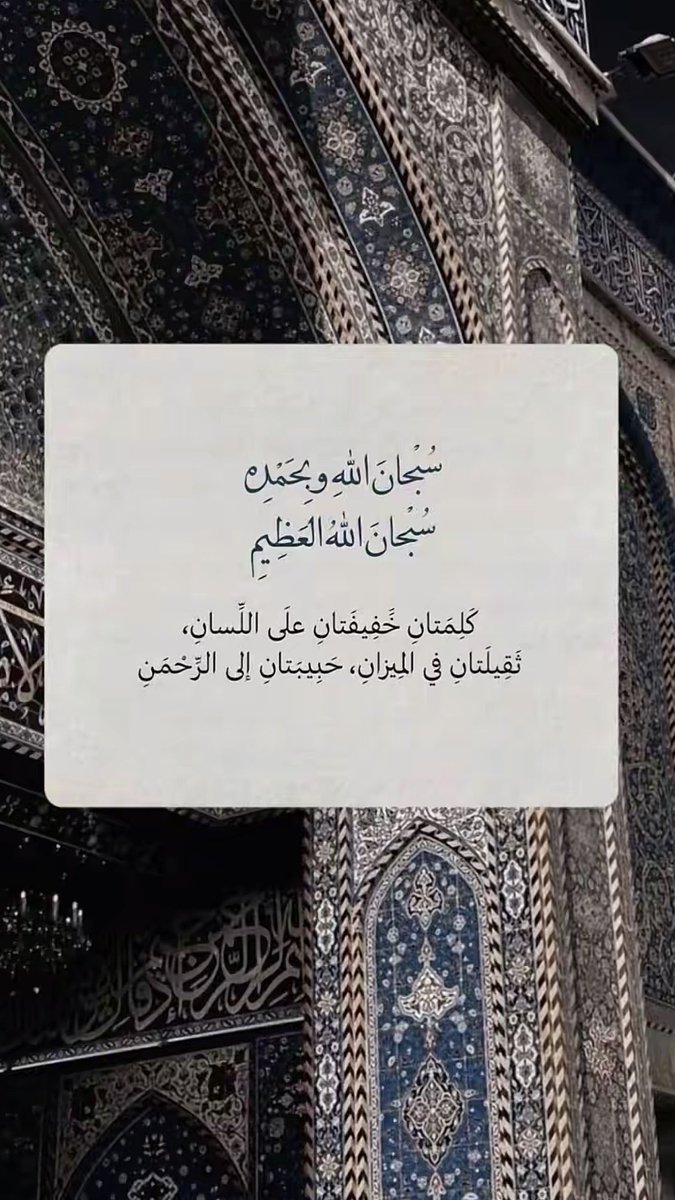 سُبْحانَ اللهِ وبِحَمْدِه
سُبْحانَ اللهُ العَظِيمِ
كَلِمَتانِ خَفِيفَتانِ علَى اللِّسانِ،
ثَقِيلَتانِ في المِيزانِ، حَبِيبَتانِ إلى الرَّحْمَنِ